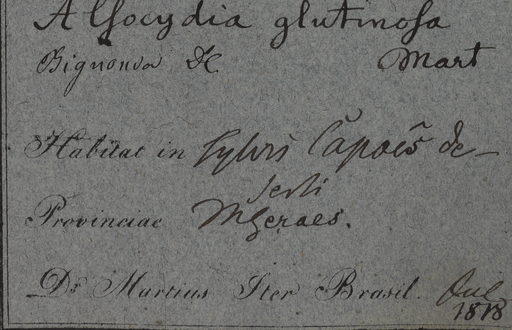 Alsocydia glutinosa
Bignonia DC. Mart
Habitat in sylvis Capoës de-
serti
Provinciae MGeraes.
Dr. Martius Iter Brasil. Jul
1818